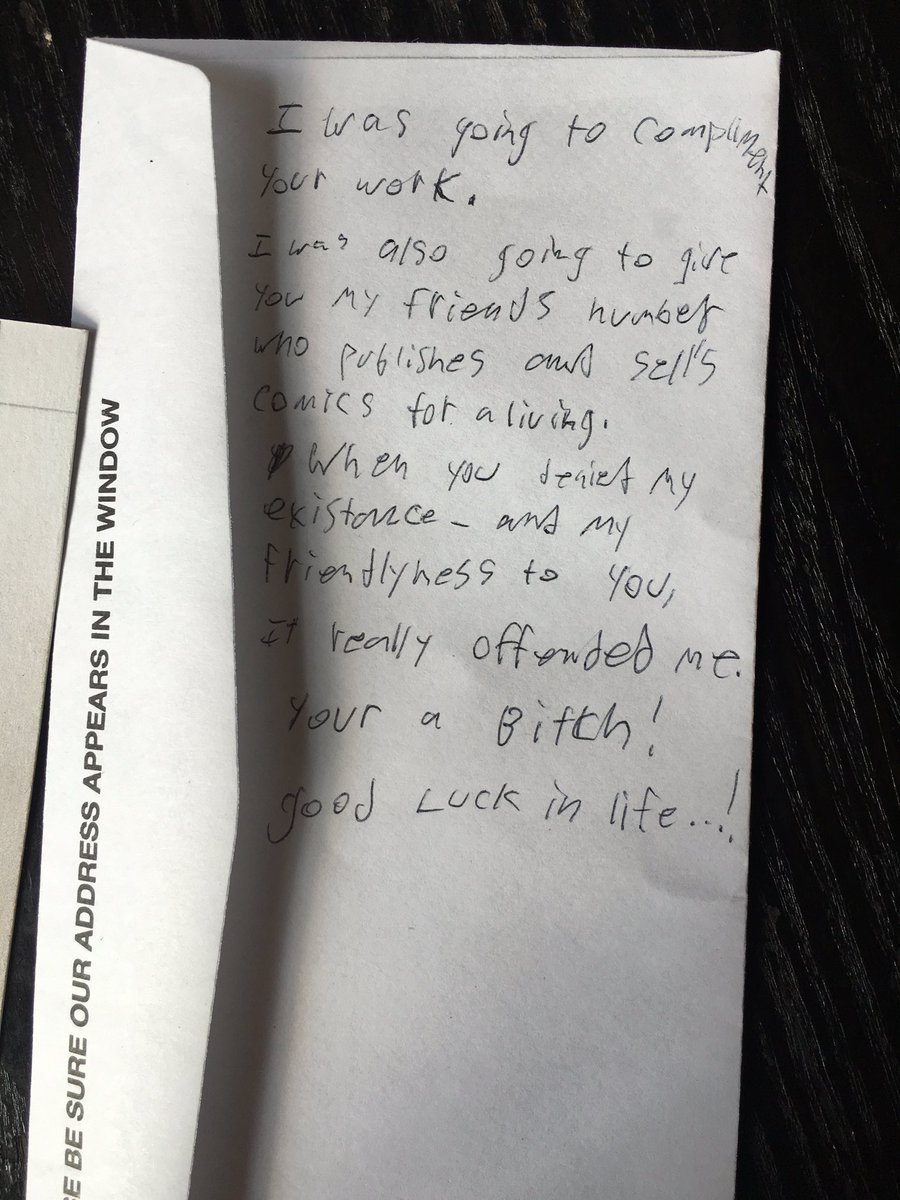 I was going to compliment
your work.
I was also going to give
you my friends number
who publishes and sell's
comics for a living.
When you denied my
existance - and my
friendlyness to you,
It really offended me.
Your a Bitch!
good Luck in life...!
SE BE SURE OUR ADDRESS APPEARS IN THE WINDOW